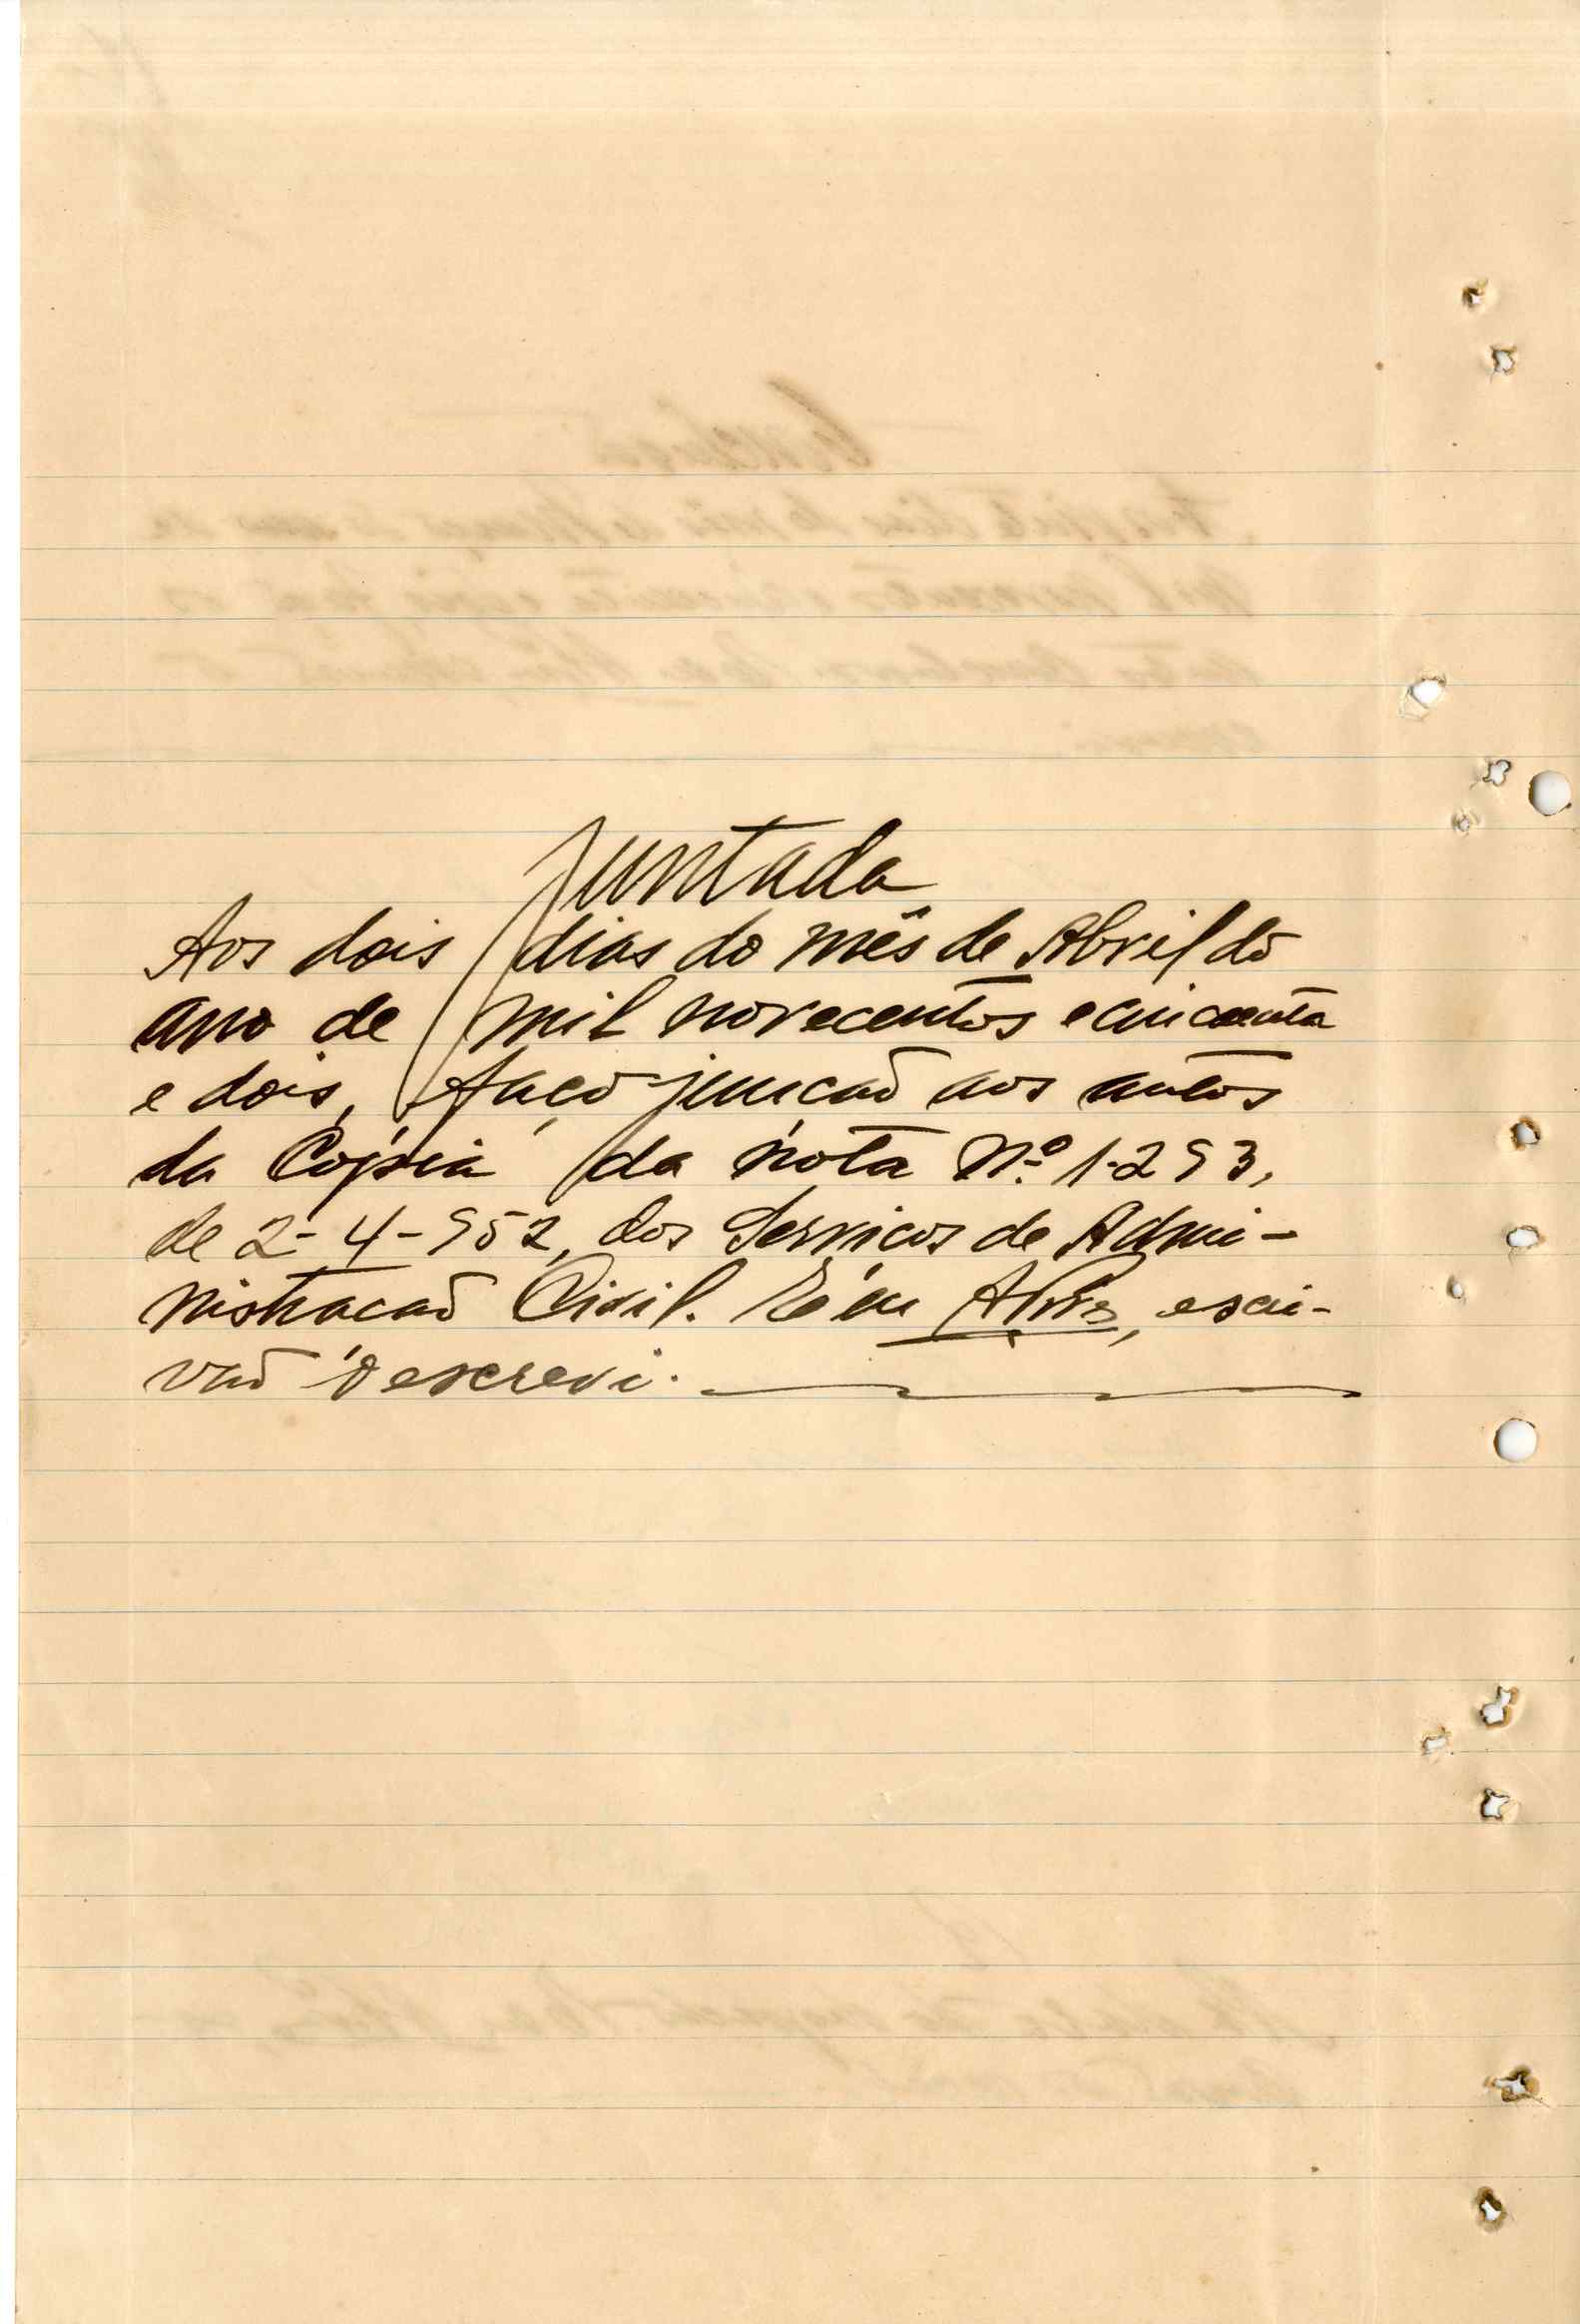 Juntada
Aos dois dias do mês de Abril do
ano de mil novecentos e cincoenta
e dois, faço junção aos autos
da Cópia da nota Nº 1.293,
de 2-4-952, dos Serviços de Admi-
nistração Civil. E eu, escri-
vão o escrevi.